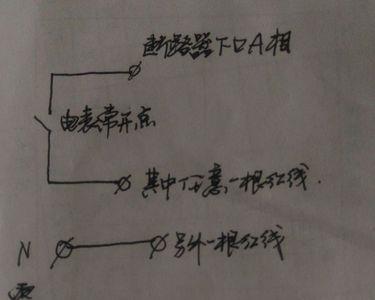 断路器下口A相
电表常开点
其中任意一根红线.
N
另外一根红线
零